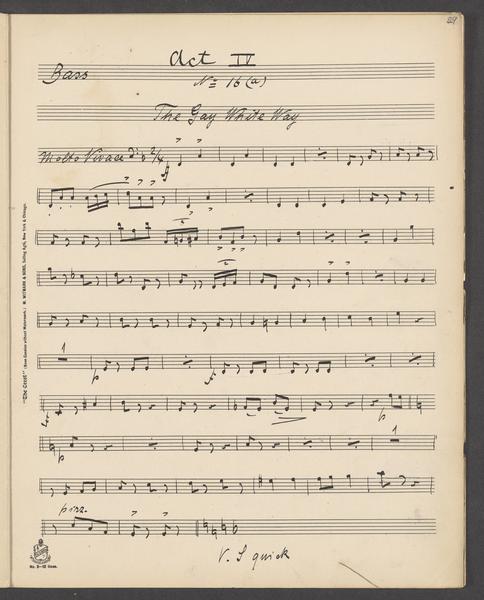 89
Act IV
Bass
№ 16 (a)
The Gay White Way
Molto Vivace 2/4
1
p
p
p
1
pizz.
V. S quick
"The Crest" (None Genuine without Watermark.) M. WITMARK & SONS, Selling Agts, New York & Chicago.
No. 3–12 lines.